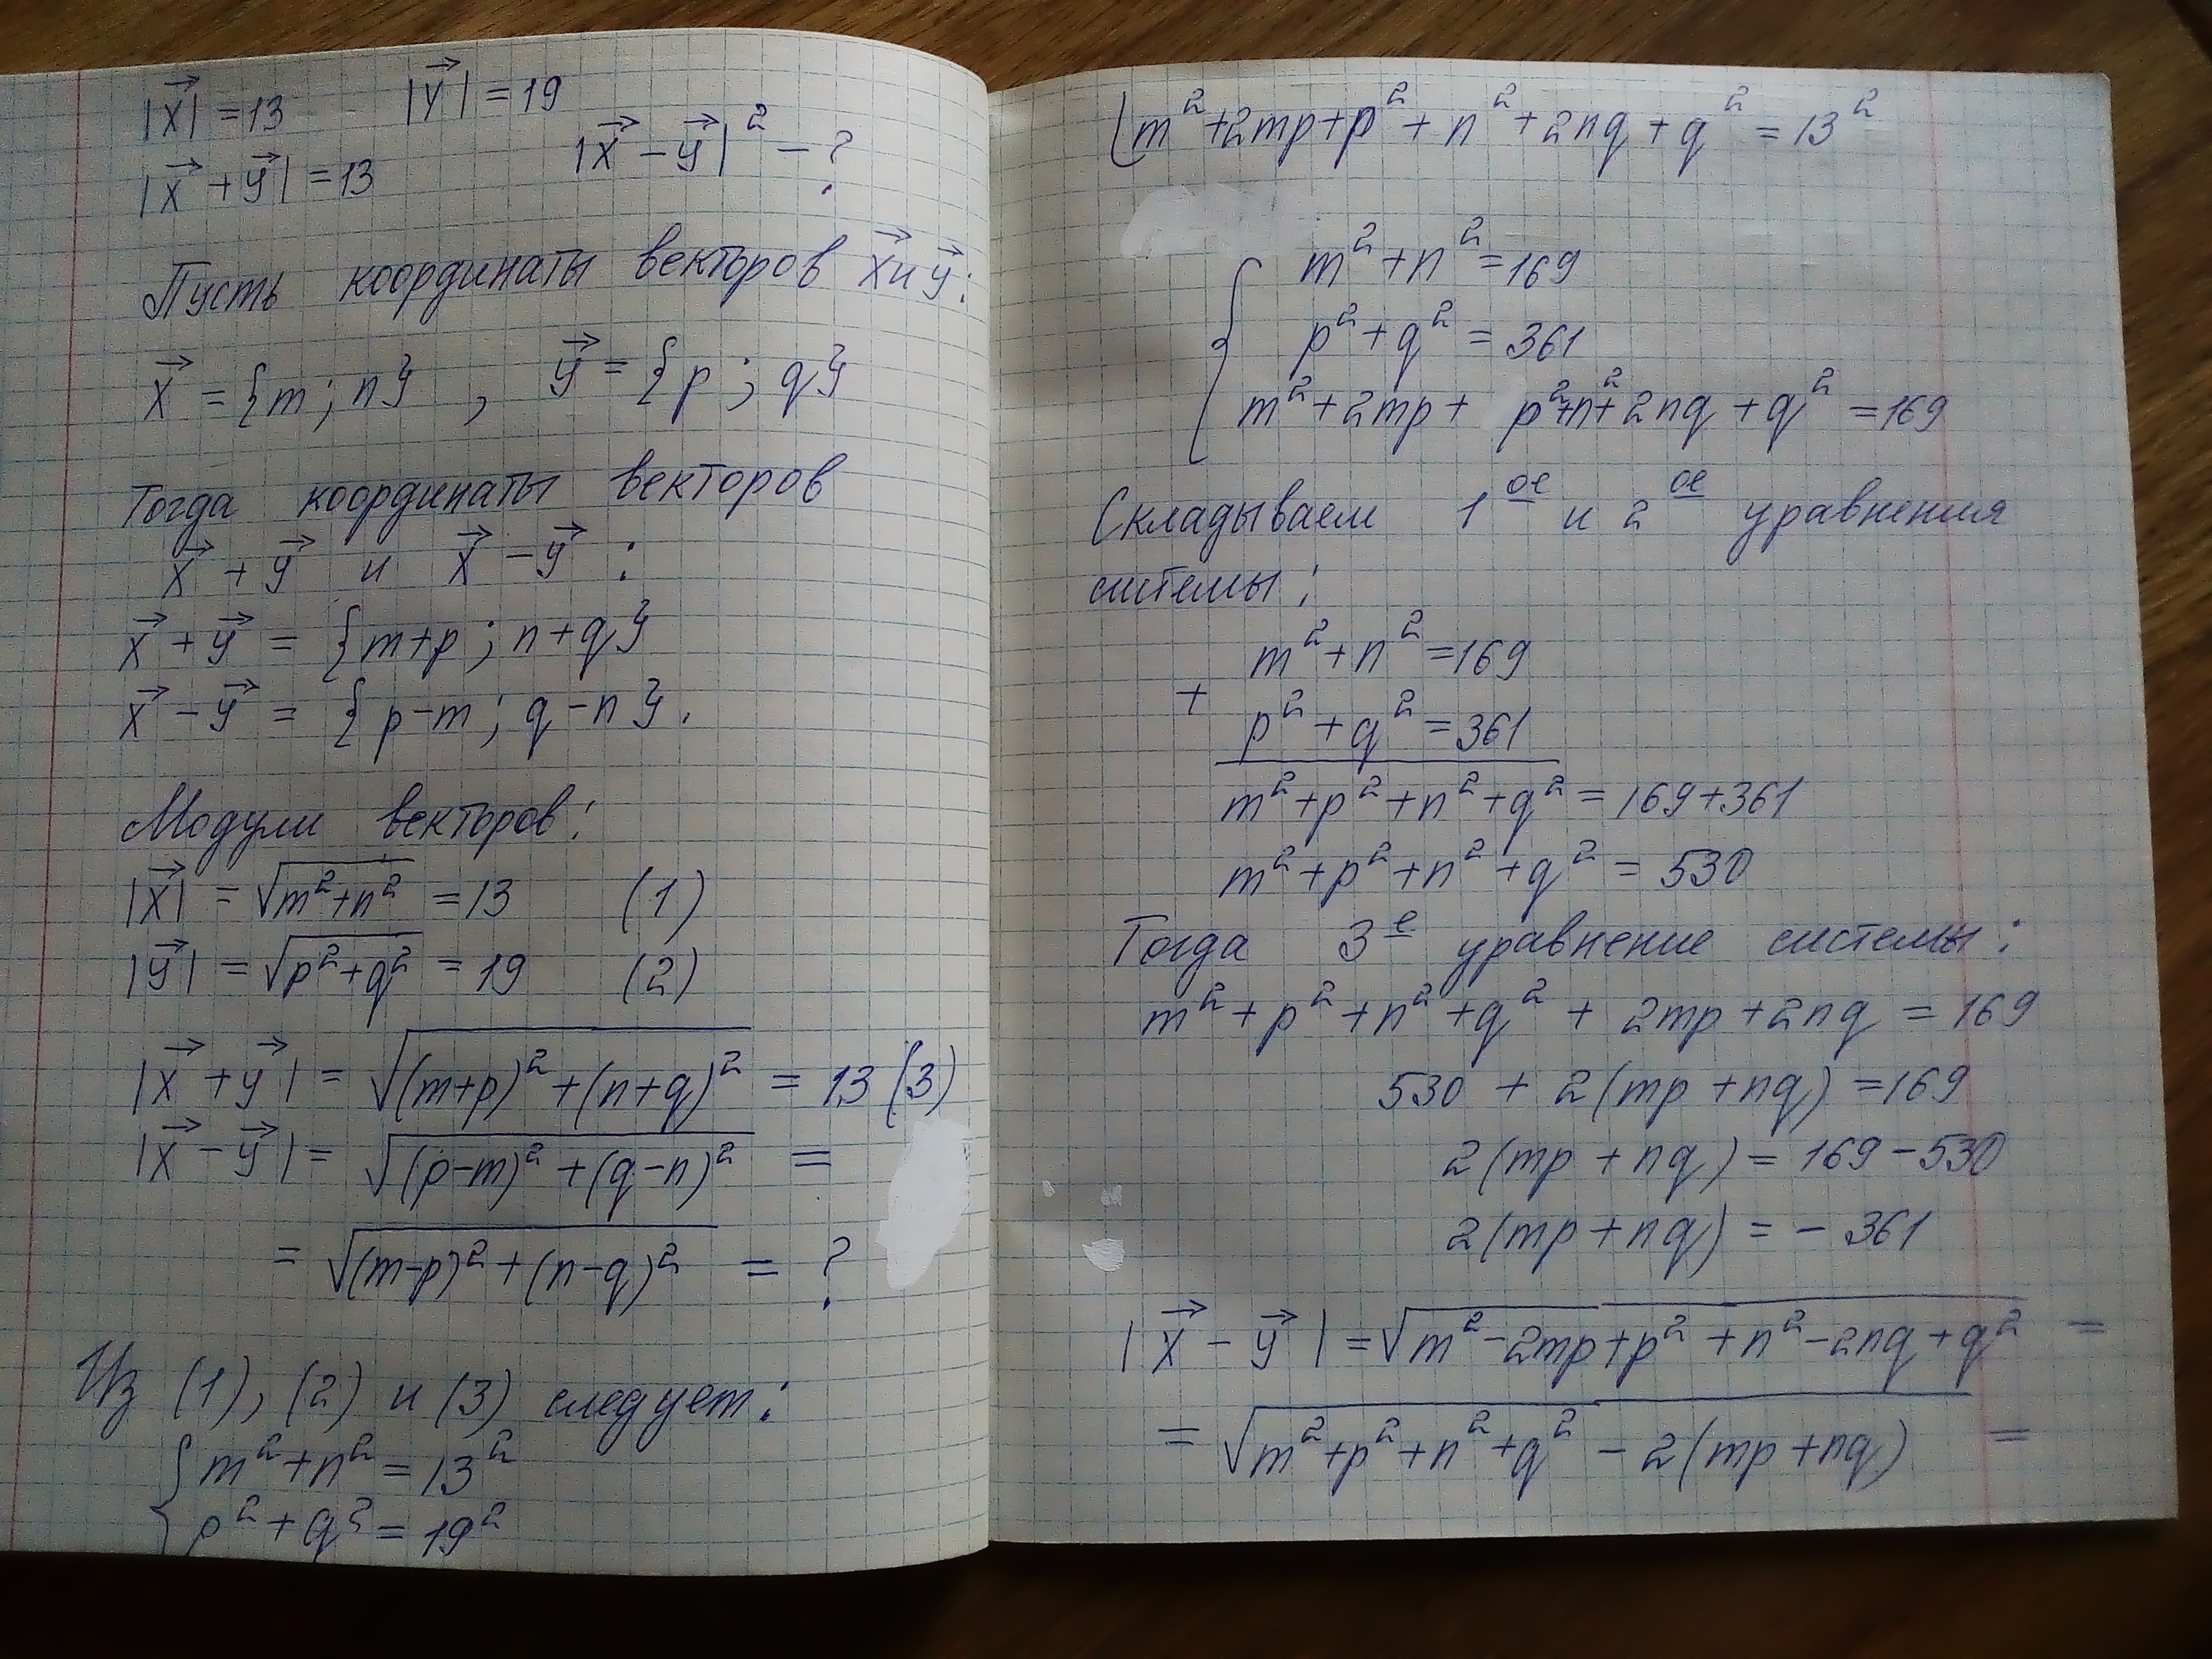 |x⃗| = 13 |y⃗| = 19
|x⃗ + y⃗| = 13 |x⃗ − y⃗|² − ?
Пусть координаты векторов x⃗ и y⃗:
x⃗ = {m; n} , y⃗ = {p; q}
Тогда координаты векторов
x⃗ + y⃗ и x⃗ − y⃗ :
x⃗ + y⃗ = {m+p; n+q}
x⃗ − y⃗ = {p−m; q−n}.
Модули векторов:
|x⃗| = √(m²+n²) = 13 (1)
|y⃗| = √(p²+q²) = 19 (2)
|x⃗ + y⃗| = √((m+p)² + (n+q)²) = 13 (3)
|x⃗ − y⃗| = √((p−m)² + (q−n)²) =
= √((m−p)² + (n−q)²) = ?
Из (1), (2) и (3) следует:
{ m² + n² = 13²
p² + q² = 19²
m² + 2mp + p² + n² + 2nq + q² = 13²
{ m² + n² = 169
p² + q² = 361
m² + 2mp + p² + n² + 2nq + q² = 169
Складываем 1ое и 2ое уравнения
системы:
m² + n² = 169
+
p² + q² = 361
m² + p² + n² + q² = 169 + 361
m² + p² + n² + q² = 530
Тогда 3е уравнение системы:
m² + p² + n² + q² + 2mp + 2nq = 169
530 + 2(mp + nq) = 169
2(mp + nq) = 169 − 530
2(mp + nq) = − 361
|x⃗ − y⃗| = √(m² − 2mp + p² + n² − 2nq + q²) =
= √(m² + p² + n² + q² − 2(mp + nq)) =